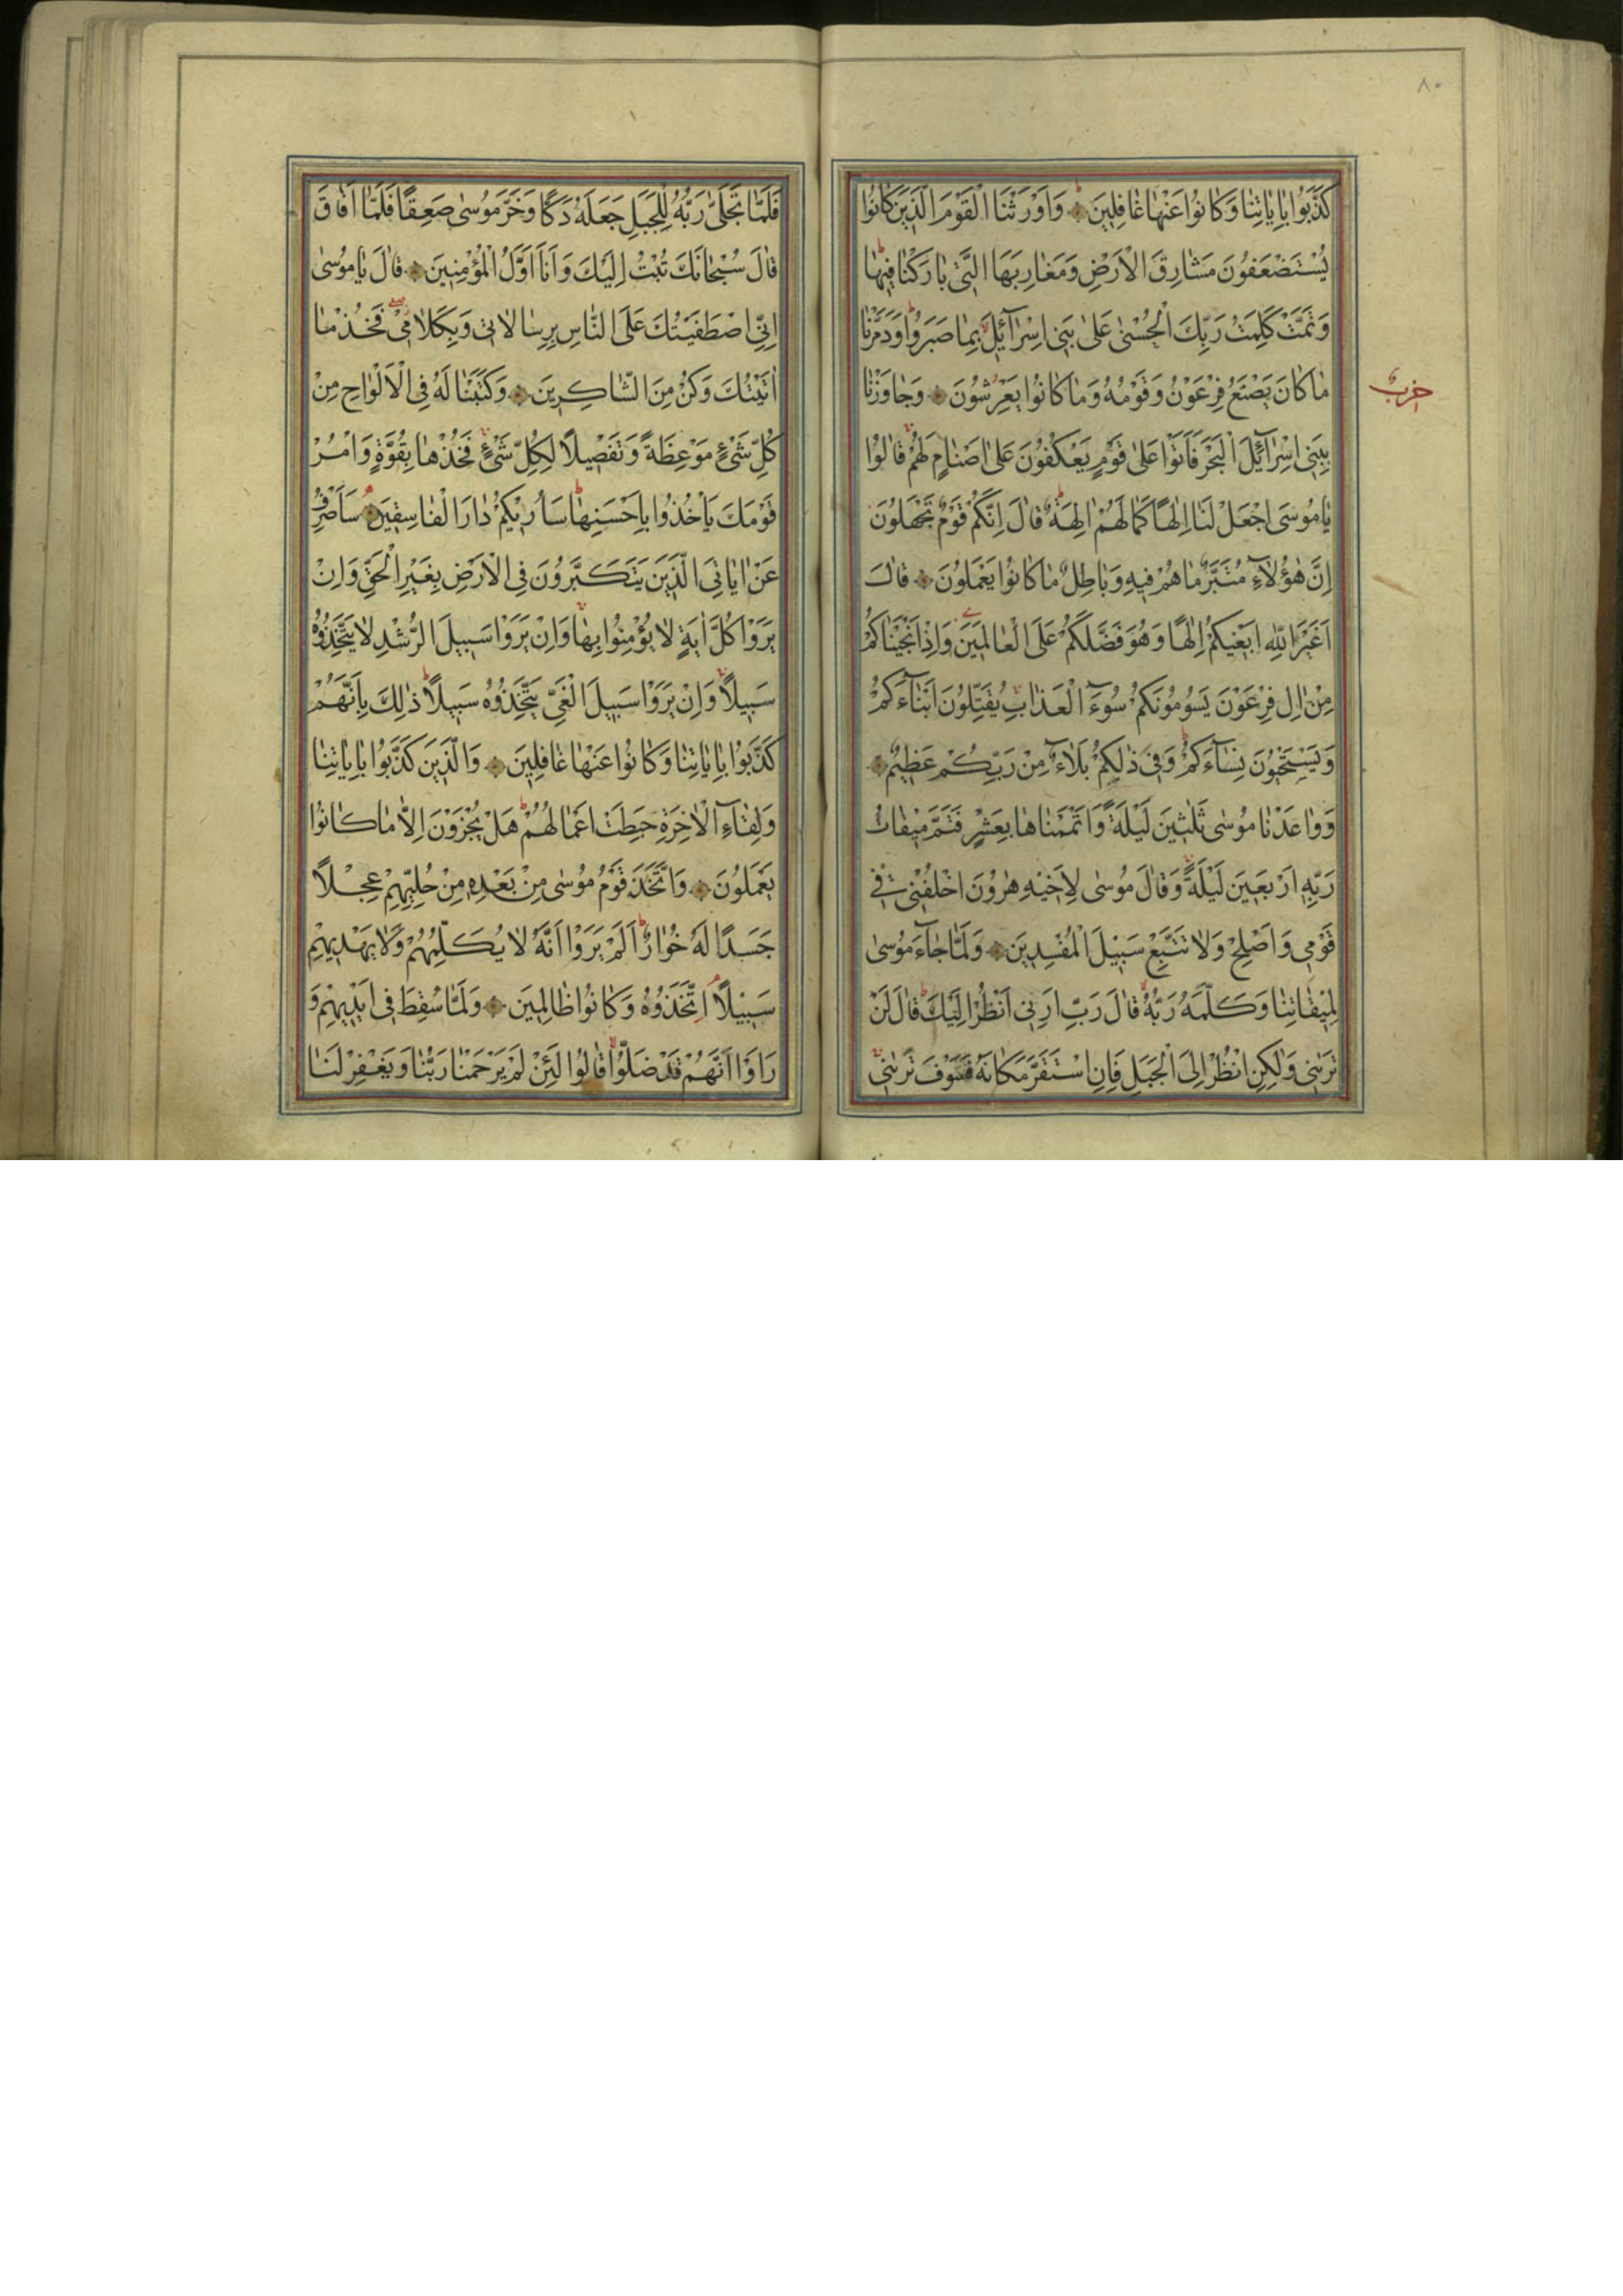 ٨٠
كَذَّبُوا بِاٰيَاتِنَا وَكَانُوا عَنْهَا غَافِلِينَ وَاَوْرَثْنَا الْقَوْمَ الَّذِينَ كَانُوا
يُسْتَضْعَفُونَ مَشَارِقَ الْاَرْضِ وَمَغَارِبَهَا الَّتِي بَارَكْنَا فِيهَا ط
وَتَمَّتْ كَلِمَتُ رَبِّكَ الْحُسْنٰى عَلٰى بَنِي اِسْرَآئِلَ بِمَا صَبَرُوا ط وَدَمَّرْنَا
مَا كَانَ يَصْنَعُ فِرْعَوْنُ وَقَوْمُهُ وَمَا كَانُوا يَعْرِشُونَ وَجَاوَزْنَا
حزب
بِبَنِي اِسْرَآئِلَ الْبَحْرَ فَاَتَوْا عَلٰى قَوْمٍ يَعْكُفُونَ عَلٰى اَصْنَامٍ لَهُمْ قَالُوا
يَا مُوسَى اجْعَلْ لَنَا اِلٰهًا كَمَا لَهُمْ اٰلِهَةٌ ط قَالَ اِنَّكُمْ قَوْمٌ تَجْهَلُونَ
اِنَّ هٰؤُلَآءِ مُتَبَّرٌ مَا هُمْ فِيهِ وَبَاطِلٌ مَا كَانُوا يَعْمَلُونَ قَالَ
اَغَيْرَ اللّٰهِ اَبْغِيكُمْ اِلٰهًا وَهُوَ فَضَّلَكُمْ عَلَى الْعَالَمِينَ وَاِذْ اَنْجَيْنَاكُمْ
مِنْ اٰلِ فِرْعَوْنَ يَسُومُونَكُمْ سُوٓءَ الْعَذَابِ يُقَتِّلُونَ اَبْنَآءَكُمْ
وَيَسْتَحْيُونَ نِسَآءَكُمْ ط وَفِي ذٰلِكُمْ بَلَآءٌ مِنْ رَبِّكُمْ عَظِيمٌ
وَوَاعَدْنَا مُوسٰى ثَلٰثِينَ لَيْلَةً وَاَتْمَمْنَاهَا بِعَشْرٍ فَتَمَّ مِيقَاتُ
رَبِّهِ اَرْبَعِينَ لَيْلَةً وَقَالَ مُوسٰى لِاَخِيهِ هٰرُونَ اخْلُفْنِي فِي
قَوْمِي وَاَصْلِحْ وَلَا تَتَّبِعْ سَبِيلَ الْمُفْسِدِينَ وَلَمَّا جَآءَ مُوسٰى
لِمِيقَاتِنَا وَكَلَّمَهُ رَبُّهُ قَالَ رَبِّ اَرِنِي اَنْظُرْ اِلَيْكَ ط قَالَ لَنْ
تَرٰينِي وَلٰكِنِ انْظُرْ اِلَى الْجَبَلِ فَاِنِ اسْتَقَرَّ مَكَانَهُ فَسَوْفَ تَرٰينِي
فَلَمَّا تَجَلّٰى رَبُّهُ لِلْجَبَلِ جَعَلَهُ دَكًّا وَخَرَّ مُوسٰى صَعِقًا فَلَمَّا اَفَاقَ
قَالَ سُبْحَانَكَ تُبْتُ اِلَيْكَ وَاَنَا اَوَّلُ الْمُؤْمِنِينَ قَالَ يَا مُوسٰى
اِنِّي اصْطَفَيْتُكَ عَلَى النَّاسِ بِرِسَالَاتِي وَبِكَلَامِي فَخُذْ مَا
اٰتَيْتُكَ وَكُنْ مِنَ الشَّاكِرِينَ وَكَتَبْنَا لَهُ فِي الْاَلْوَاحِ مِنْ
كُلِّ شَيْءٍ مَوْعِظَةً وَتَفْصِيلًا لِكُلِّ شَيْءٍ فَخُذْهَا بِقُوَّةٍ وَاْمُرْ
قَوْمَكَ يَاْخُذُوا بِاَحْسَنِهَا ط سَاُرِيكُمْ دَارَ الْفَاسِقِينَ سَاَصْرِفُ
عَنْ اٰيَاتِيَ الَّذِينَ يَتَكَبَّرُونَ فِي الْاَرْضِ بِغَيْرِ الْحَقِّ وَاِنْ
يَرَوْا كُلَّ اٰيَةٍ لَا يُؤْمِنُوا بِهَا وَاِنْ يَرَوْا سَبِيلَ الرُّشْدِ لَا يَتَّخِذُوهُ
سَبِيلًا وَاِنْ يَرَوْا سَبِيلَ الْغَيِّ يَتَّخِذُوهُ سَبِيلًا ط ذٰلِكَ بِاَنَّهُمْ
كَذَّبُوا بِاٰيَاتِنَا وَكَانُوا عَنْهَا غَافِلِينَ وَالَّذِينَ كَذَّبُوا بِاٰيَاتِنَا
وَلِقَآءِ الْاٰخِرَةِ حَبِطَتْ اَعْمَالُهُمْ ط هَلْ يُجْزَوْنَ اِلَّا مَا كَانُوا
يَعْمَلُونَ وَاتَّخَذَ قَوْمُ مُوسٰى مِنْ بَعْدِهِ مِنْ حُلِيِّهِمْ عِجْلًا
جَسَدًا لَهُ خُوَارٌ ط اَلَمْ يَرَوْا اَنَّهُ لَا يُكَلِّمُهُمْ وَلَا يَهْدِيهِمْ
سَبِيلًا اِتَّخَذُوهُ وَكَانُوا ظَالِمِينَ وَلَمَّا سُقِطَ فِي اَيْدِيهِمْ وَ
رَاَوْا اَنَّهُمْ قَدْ ضَلُّوا قَالُوا لَئِنْ لَمْ يَرْحَمْنَا رَبُّنَا وَيَغْفِرْ لَنَا